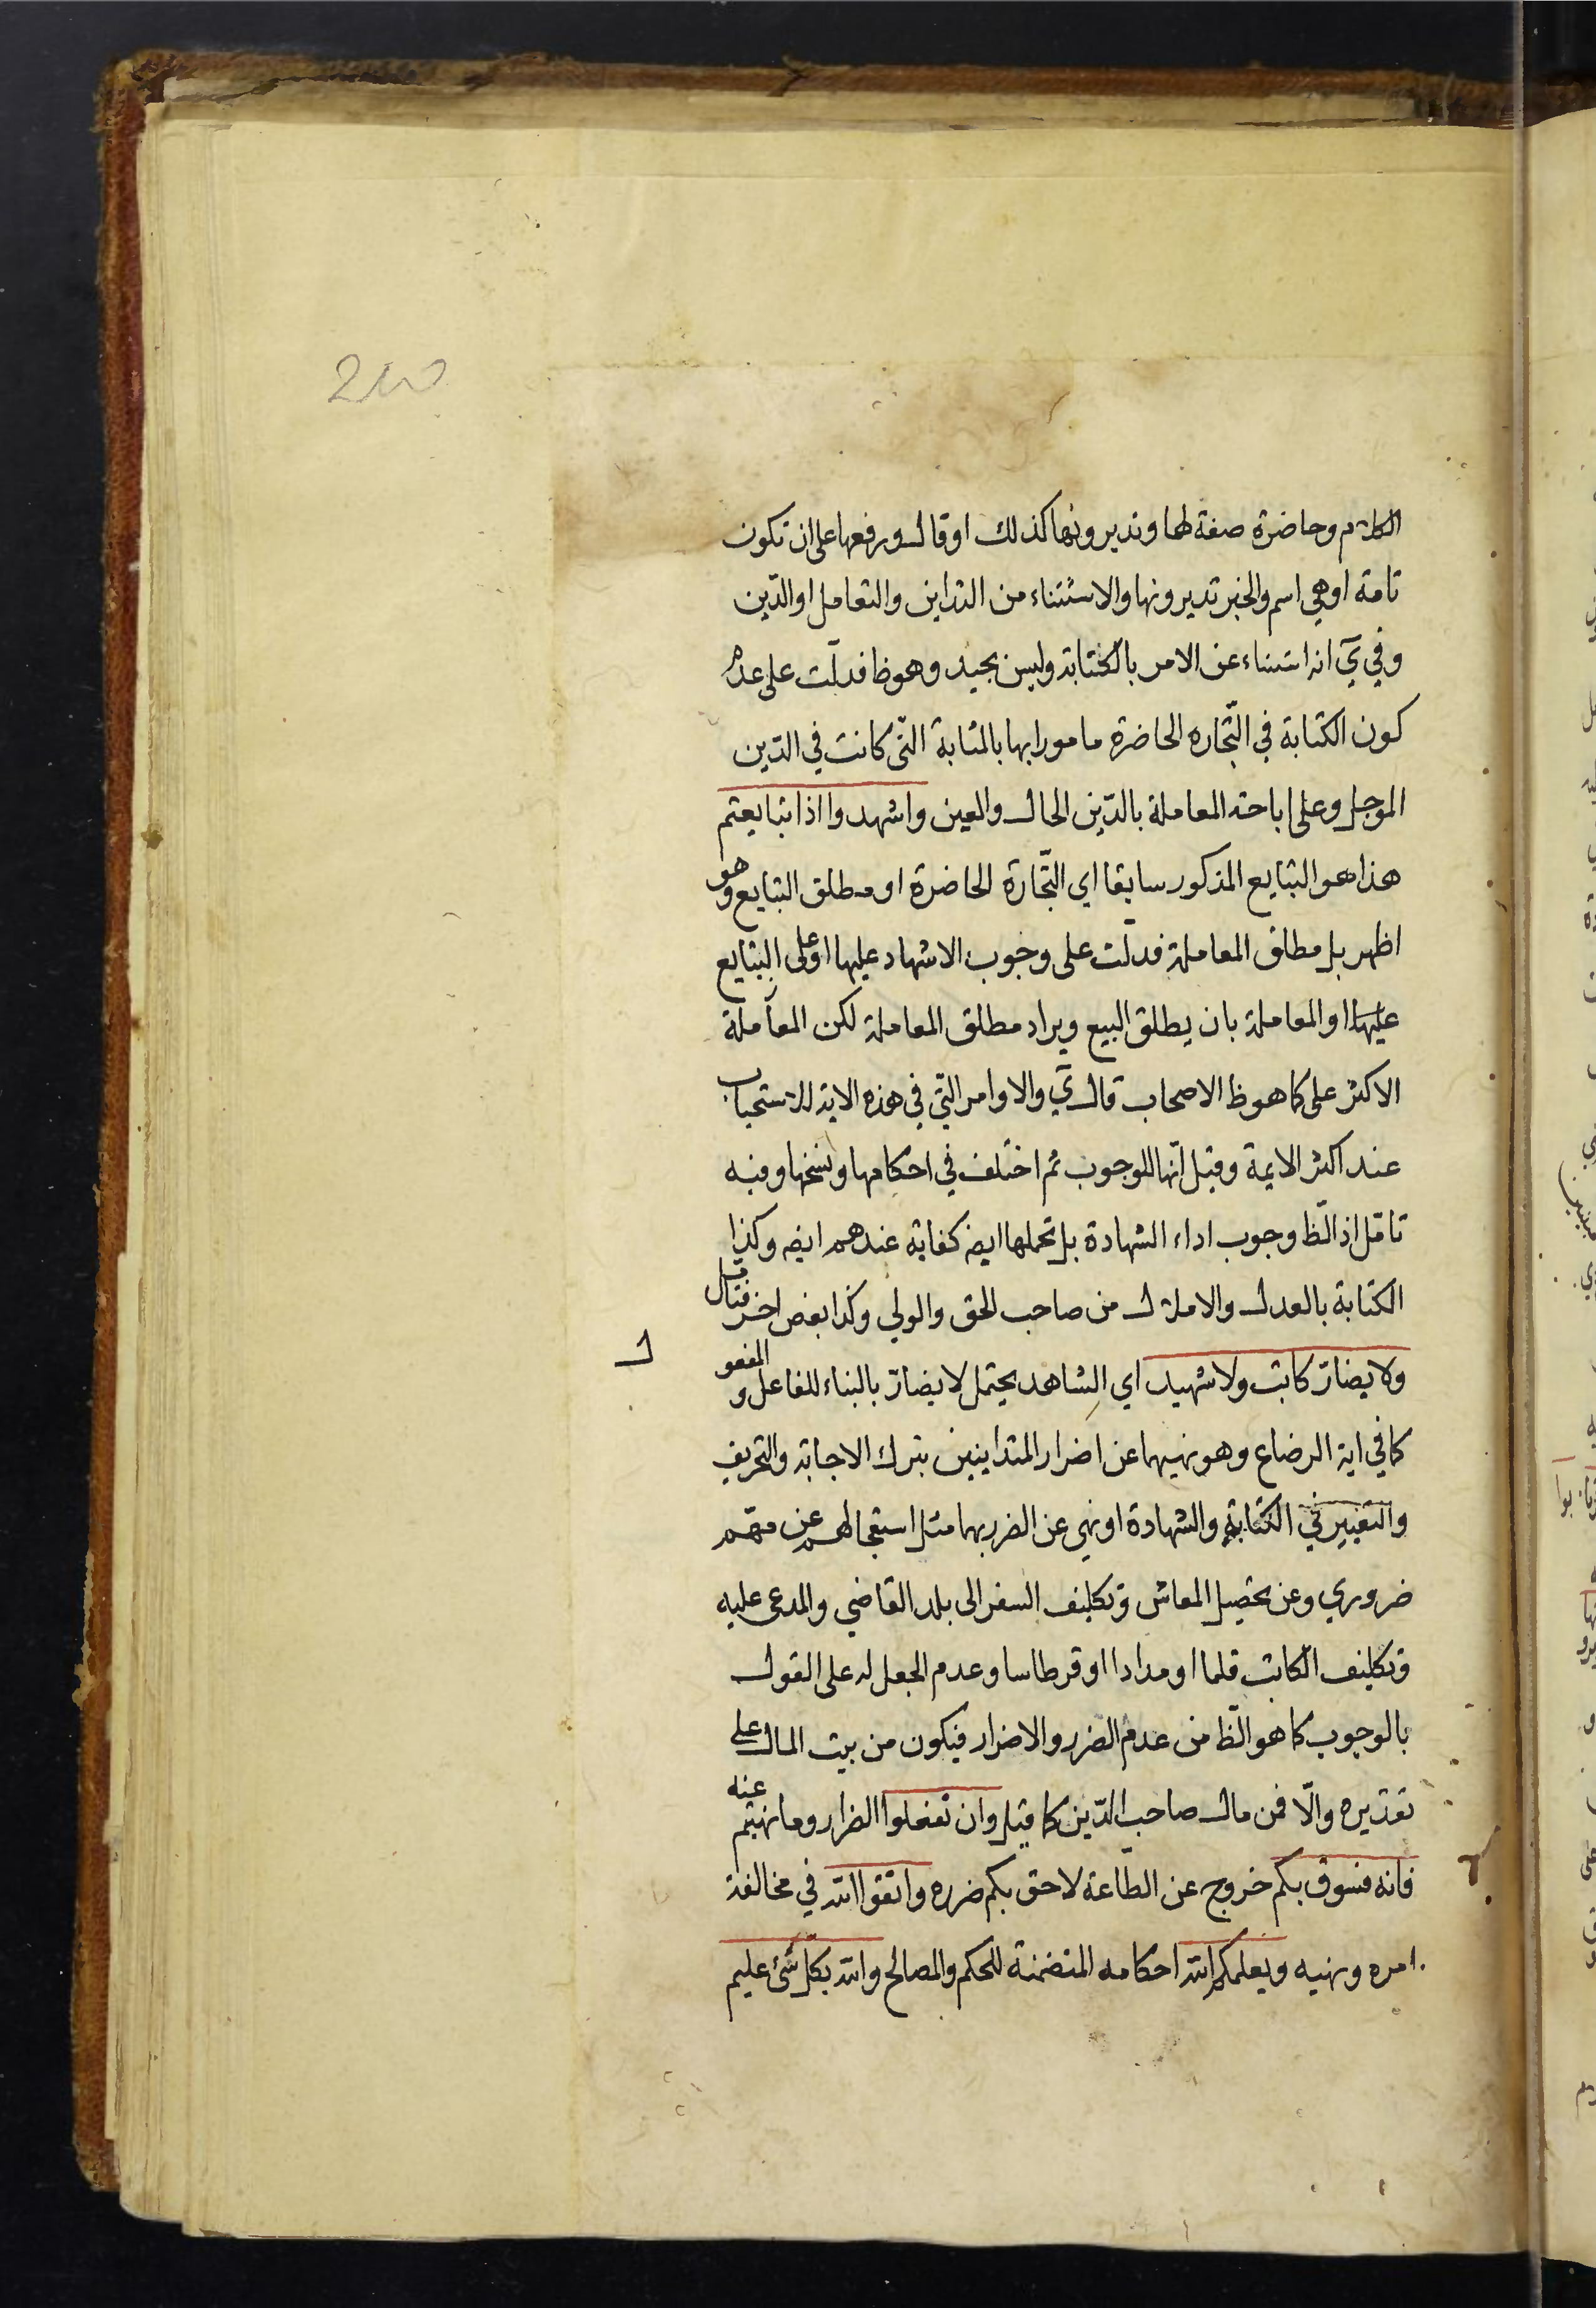 الكلام وحاضرة صفة لها وتديرونها كذلك او قال ورفعها على ان تكون
تامة او هي اسم والخبر تديرونها والاستثناء من التداين والتعامل او الدّين
وفي ي انه استثناء عن الامر بالكتابة وليس بجيد وهو ظ فدلّت على عدم
كون الكتابة في التّجاره الحاضرة مامورا بها بالمثابة التّى كانت في الدّين
الموجل وعلى اباحة المعاملة بالدّين الحال والعين واشهدوا اذا تبايعتم
هذا هو التبايع المذكور سابقا اي التّجارة الحاضرة او مطلق التبايع وهو
اظهر بل مطلق المعاملة فدلّت على وجوب الاشهاد عليها او على التبايع
عليها او المعاملة بان يطلق البيع ويراد مطلق المعاملة لكن المعاملة
الاكثر على كما هو ظ الاصحاب قال ي والاوامر التّي في هذه الاية للاستحباب
عند اكثر الايمة وقيل انّها للوجوب ثم اختلف في احكامها ونسخها وفيه
تامّل اذ الظّ وجوب اداء الشهادة بل تحملها ايض كفاية عندهم ايض وكذا
الكتابة بالعدل والاملال من صاحب الحق والولي وكذا بعض اخر فتامّل
ولا يضارّ كاتب ولا شهيد اي الشاهد يحتمل لا يضارّ بالبناء للفاعل والمفعو
ل
كما في اية الرضاع وهو نهيهما عن اضرار المتداينين بترك الاجابة والتحريف
والتغيير في الكتابة والشهادة او نهي عن الضرر بهما مثل استعجالهم عن مهّم
ضروري وعن تحصيل المعاش وتكليف السفر الى بلد القاضي والمدعى عليه
وتكليف الكاتب قلما او مدادا او قرطاسا وعدم الجعل له على القول
بالوجوب كما هو الظّ من عدم الضرر والاضرار فيكون من بيت المال على
تقديره والّا فمن مال صاحب الدّين كما قيل وان تفعلوا الضرار وما نهيتم عنه
فانه فسوق بكم خروج عن الطاعة لاحق بكم ضرره واتقوا الله في مخالفة
امره ونهيه ويعلمكم الله احكامه المتضمنة للحكم والمصالح والله بكل شئ عليم